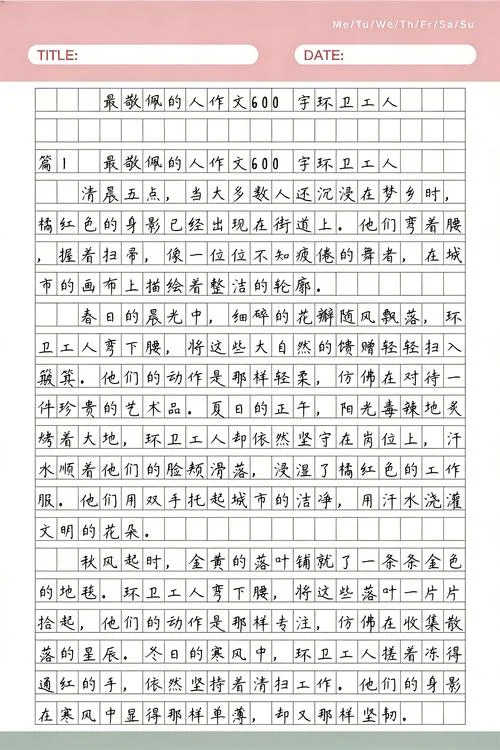 Me/Tu/We/Th/Fr/Sa/Su
TITLE:
DATE:
最敬佩的人作文600 字环卫工人
篇1 最敬佩的人作文600 字环卫工人
清晨五点，当大多数人还沉浸在梦乡时，
橘红色的身影已经出现在街道上。他们弯着腰
，握着扫帚，像一位位不知疲倦的舞者，在城
市的画布上描绘着整洁的轮廓。
春日的晨光中，细碎的花瓣随风飘落，环
卫工人弯下腰，将这些大自然的馈赠轻轻扫入
簸箕。他们的动作是那样轻柔，仿佛在对待一
件珍贵的艺术品。夏日的正午，阳光毒辣地炙
烤着大地，环卫工人却依然坚守在岗位上，汗
水顺着他们的脸颊滑落，浸湿了橘红色的工作
服。他们用双手托起城市的洁净，用汗水浇灌
文明的花朵。
秋风起时，金黄的落叶铺就了一条条金色
的地毯。环卫工人弯下腰，将这些落叶一片片
拾起，他们的动作是那样专注，仿佛在收集散
落的星辰。冬日的寒风中，环卫工人搓着冻得
通红的手，依然坚持着清扫工作。他们的身影
在寒风中显得那样单薄，却又那样坚韧。